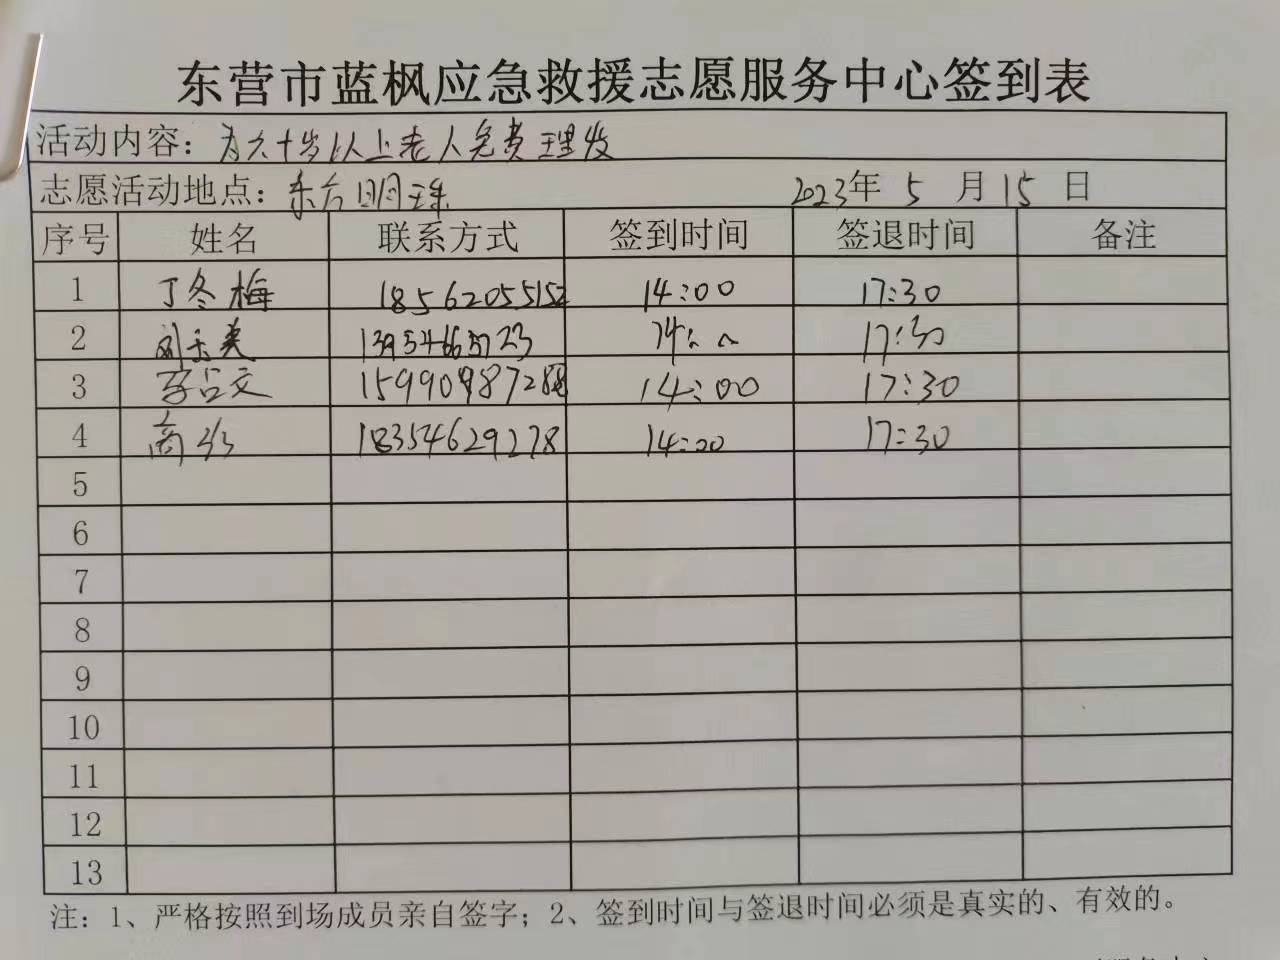 东营市蓝枫应急救援志愿服务中心签到表
活动内容：为六十岁以上老人免费理发
志愿活动地点：东方明珠 2023年 5 月 15 日
序号 姓名 联系方式 签到时间 签退时间 备注
1 丁冬梅 18562055152 14:00 17:30
2 17:30
3 李占文 14:00 17:30
4 商 18354629278 14:00 17:30
5
6
7
8
9
10
11
12
13
注：1、严格按照到场成员亲自签字；2、签到时间与签退时间必须是真实的、有效的。